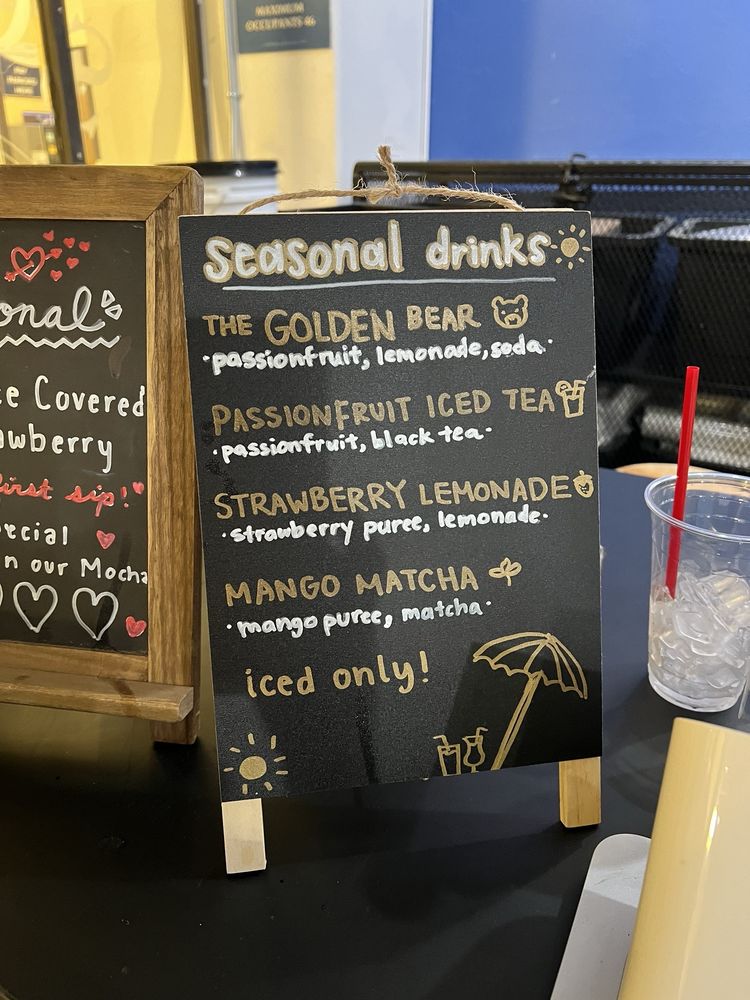 MAXIMUM
OCCUPANTS 46
seasonal drinks
THE GOLDEN BEAR
·passionfruit, lemonade, soda·
PASSIONFRUIT ICED TEA
·passionfruit, black tea·
STRAWBERRY LEMONADE
·strawberry puree, lemonade·
MANGO MATCHA
·mango puree, matcha·
iced only!
onal
te Covered
awberry
first sip!
pecial
n our Mocha